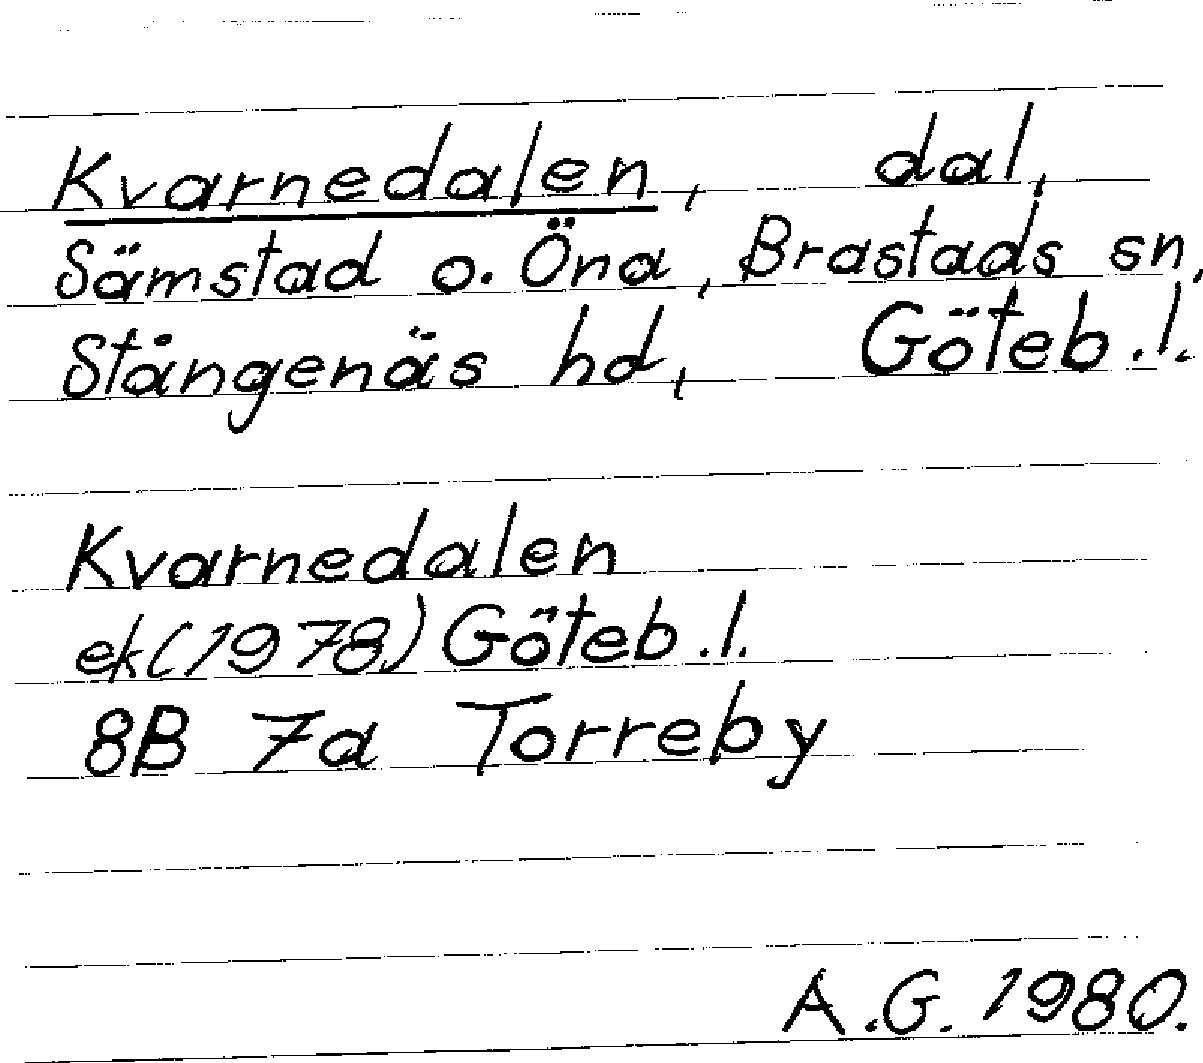 Kvarnedalen, dal,
Sämstad o. Öna, Brastads sn,
Stångenäs hd, Göteb.l.
Kvarnedalen
ek(1978) Göteb.l.
8B 7a Torreby
A.G. 1980.